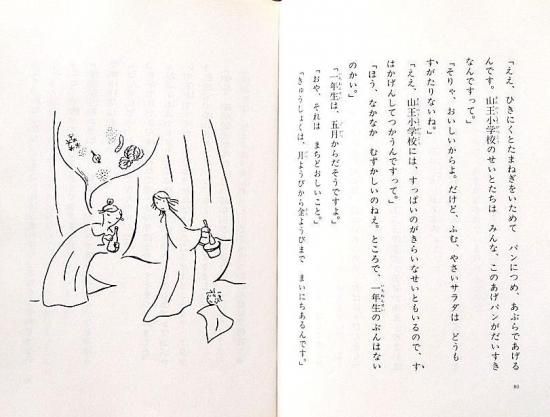 「ええ、ひきにくとたまねぎをいためて パンにつめ、あぶらであげる
んです。山王小学校のせいとたちは みんな、このあげパンがだいすき
なんですって。」
「そりゃ、おいしいからよ。だけど、ふむ、やさいサラダは どうも
すがたりないね。」
「ええ、山王小学校には、すっぱいのがきらいなせいともいるので、す
はかげんしてつかうんですって。」
「ほう、なかなか むずかしいのねえ。ところで、一年生のぶんはない
のかい。」
「一年生は、五月からだそうですよ。」
「おや、それは まちどおしいこと。」
「きゅうしょくは、月ようびから金ようびまで まいにちあるんです。」